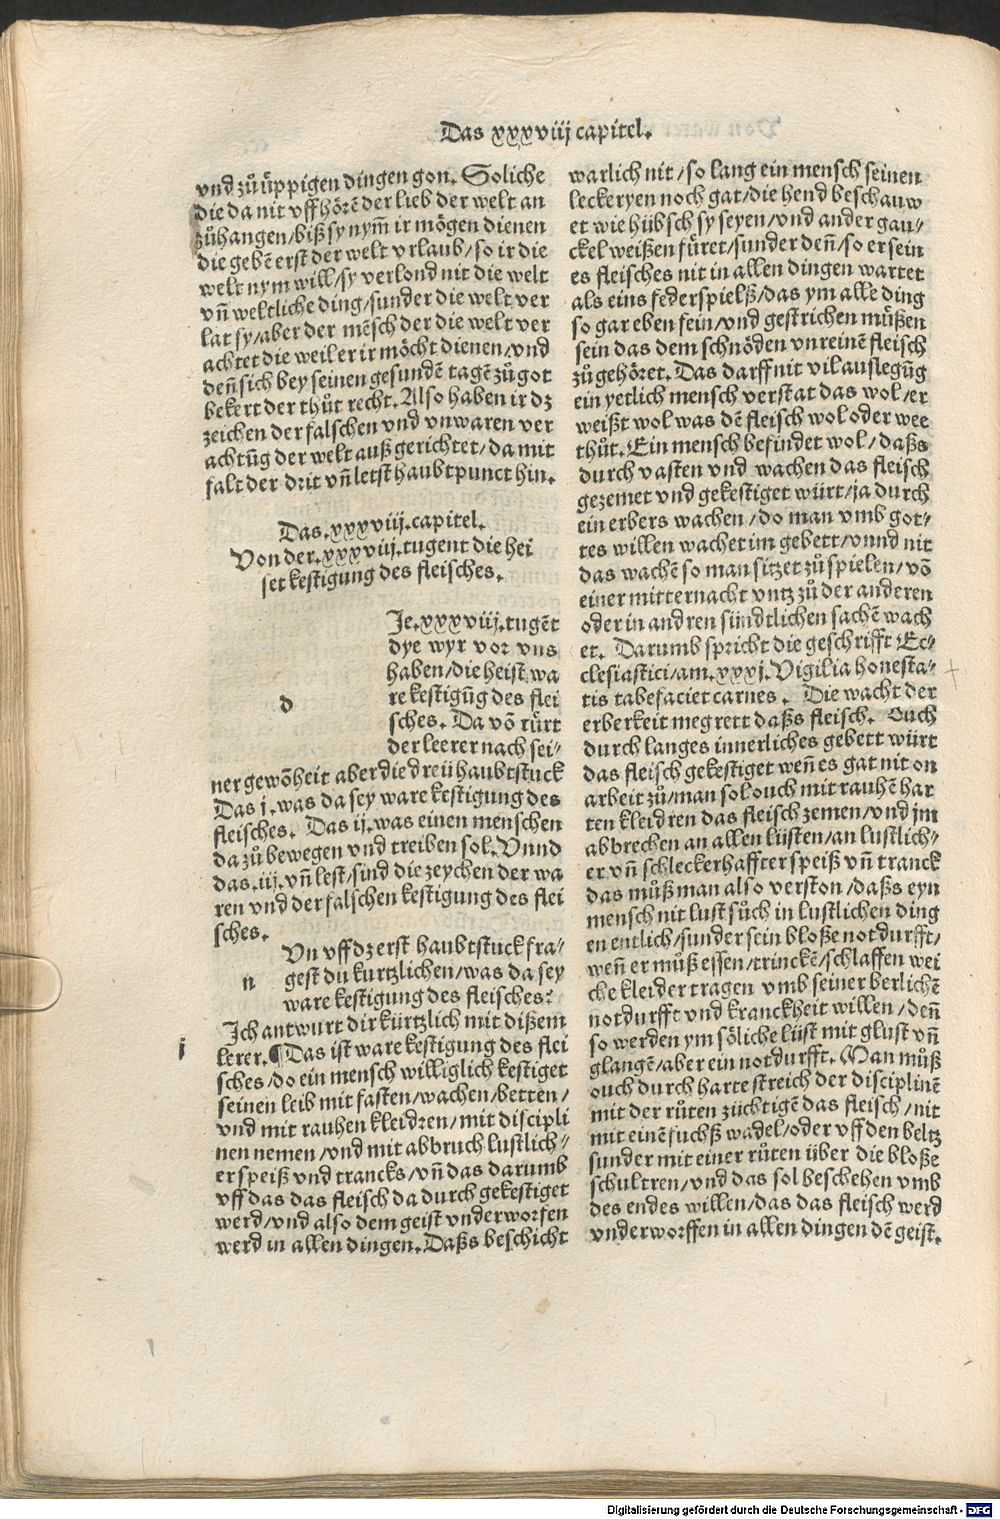 Das xxxviij capitel.
vnd zuͦ üppigen dingen gon. Soliche
die da nit vff hoͤrẽ der lieb der welt an
zuͦhangen/biß sy nym̃ ir moͤgen dienen
die gebẽ erst der welt vrlaub/so ir die
welt nym will/sy verlond nit die welt
vñ weltliche ding/sunder die welt ver
lat sy/aber der mẽsch der die welt ver
achtet die weil er ir moͤcht dienen/vnd
deñ sich bey seinen gesundẽ tagẽ zuͦ got
bekert der thuͦt recht. Also haben ir dz
zeichen der falschen vnd vnwaren ver
achtũg der welt auß gerichtet/da mit
falt der drit vñ letst haubtpunct hin.
Das .xxxviij. capitel.
Von der .xxxviij. tugent die hei
set kestigung des fleisches.
d
Je .xxxviij. tugẽt
dye wyr vor vns
haben/die heist wa
re kestigũg des flei
sches. Da võ ruͤrt
der leerer nach sei-
ner gewõheit aber die dreü haubtstuck
Das j. was da sey ware kestigung des
fleisches. Das ij. was einen menschen
da zuͦ bewegen vnd treiben sol. Vnnd
das .iij. vñ lest/sind die zeychen der wa
ren vnd der falschen kestigung des flei
sches.
n
Vn vff dz erst haubtstuck fra-
gest du kurtzlichen/was da sey
ware kestigung des fleisches?
Ich antwurt dir kürtzlich mit dißem
i
lerer. ¶Das ist ware kestigung des flei
sches/do ein mensch williglich kestiget
seinen leib mit fasten/wachen/betten/
vnd mit rauhen kleidren/mit discipli
nen nemen/vnd mit abbruch lustlich-
er speiß vnd trancks/vñ das darumb
vff das das fleisch da durch gekestiget
werd/vnd also dem geist vnderworfen
werd in allen dingen. Daßs beschicht
warlich nit/so lang ein mensch seinen
leckeryen noch gat/die hend beschauw
et wie hübsch sy seyen/vnd ander gau-
ckel weißen fuͤret/sunder deñ/so er sein
es fleisches nit in allen dingen wartet
als eins federspielß/das ym alle ding
so gar eben fein/vnd gestrichen muͤßen
sein das dem schnoͤden vnreinẽ fleisch
zuͦ gehoͤret. Das darff nit vil auslegũg
ein yetlich mensch verstat das wol/er
weißt wol was dẽ fleisch wol oder wee
thuͦt. Ein mensch befindet wol/daßs
durch vasten vnd wachen das fleisch
gezemet vnd gekestiget würt/ja durch
ein erbers wachen/do man vmb got-
tes willen wachet im gebett/vnnd nit
das wachẽ so man sitzet zuͦ spielen/võ
einer mitternacht vntz zuͦ der anderen
oder in andren sündtlichen sachẽ wach
et. Darumb spricht die geschrifft Ec-
clesiastici/am .xxxj. Vigilia honesta-
tis tabefaciet carnes. Die wacht der
erberkeit megrett daßs fleisch. Ouch
durch langes innerliches gebett würt
das fleisch gekestiget weñ es gat nit on
arbeit zuͦ/man sol ouch mit rauhẽ har
ten kleidren das fleisch zemen/vnd jm
abbrechen an allen lüsten/an lustlich-
er vñ schleckerhaffter speiß vñ tranck
das muͦß man also verston/daßs eyn
mensch nit lust suͦch in lustlichen ding
en entlich/sunder sein bloße notdurfft/
weñ er muͦß essen/trinckẽ/schlaffen wei
che kleider tragen vmb seiner berlichẽ
notdurfft vnd kranckheit willen/deñ
so werden ym soͤliche lüst mit glust vñ
glangẽ/aber ein notdurfft. Man muͦß
ouch durch harte streich der disciplinẽ
mit der ruͦten züchtigẽ das fleisch/nit
mit einẽ fuchß wadel/oder vff den beltz
sunder mit einer ruͦten über die bloße
schultren/vnd das sol beschehen vmb
des endes willen/das das fleisch werd
vnderworffen in allen dingen dẽ geist.
Digitalisierung gefördert durch die Deutsche Forschungsgemeinschaft - DFG